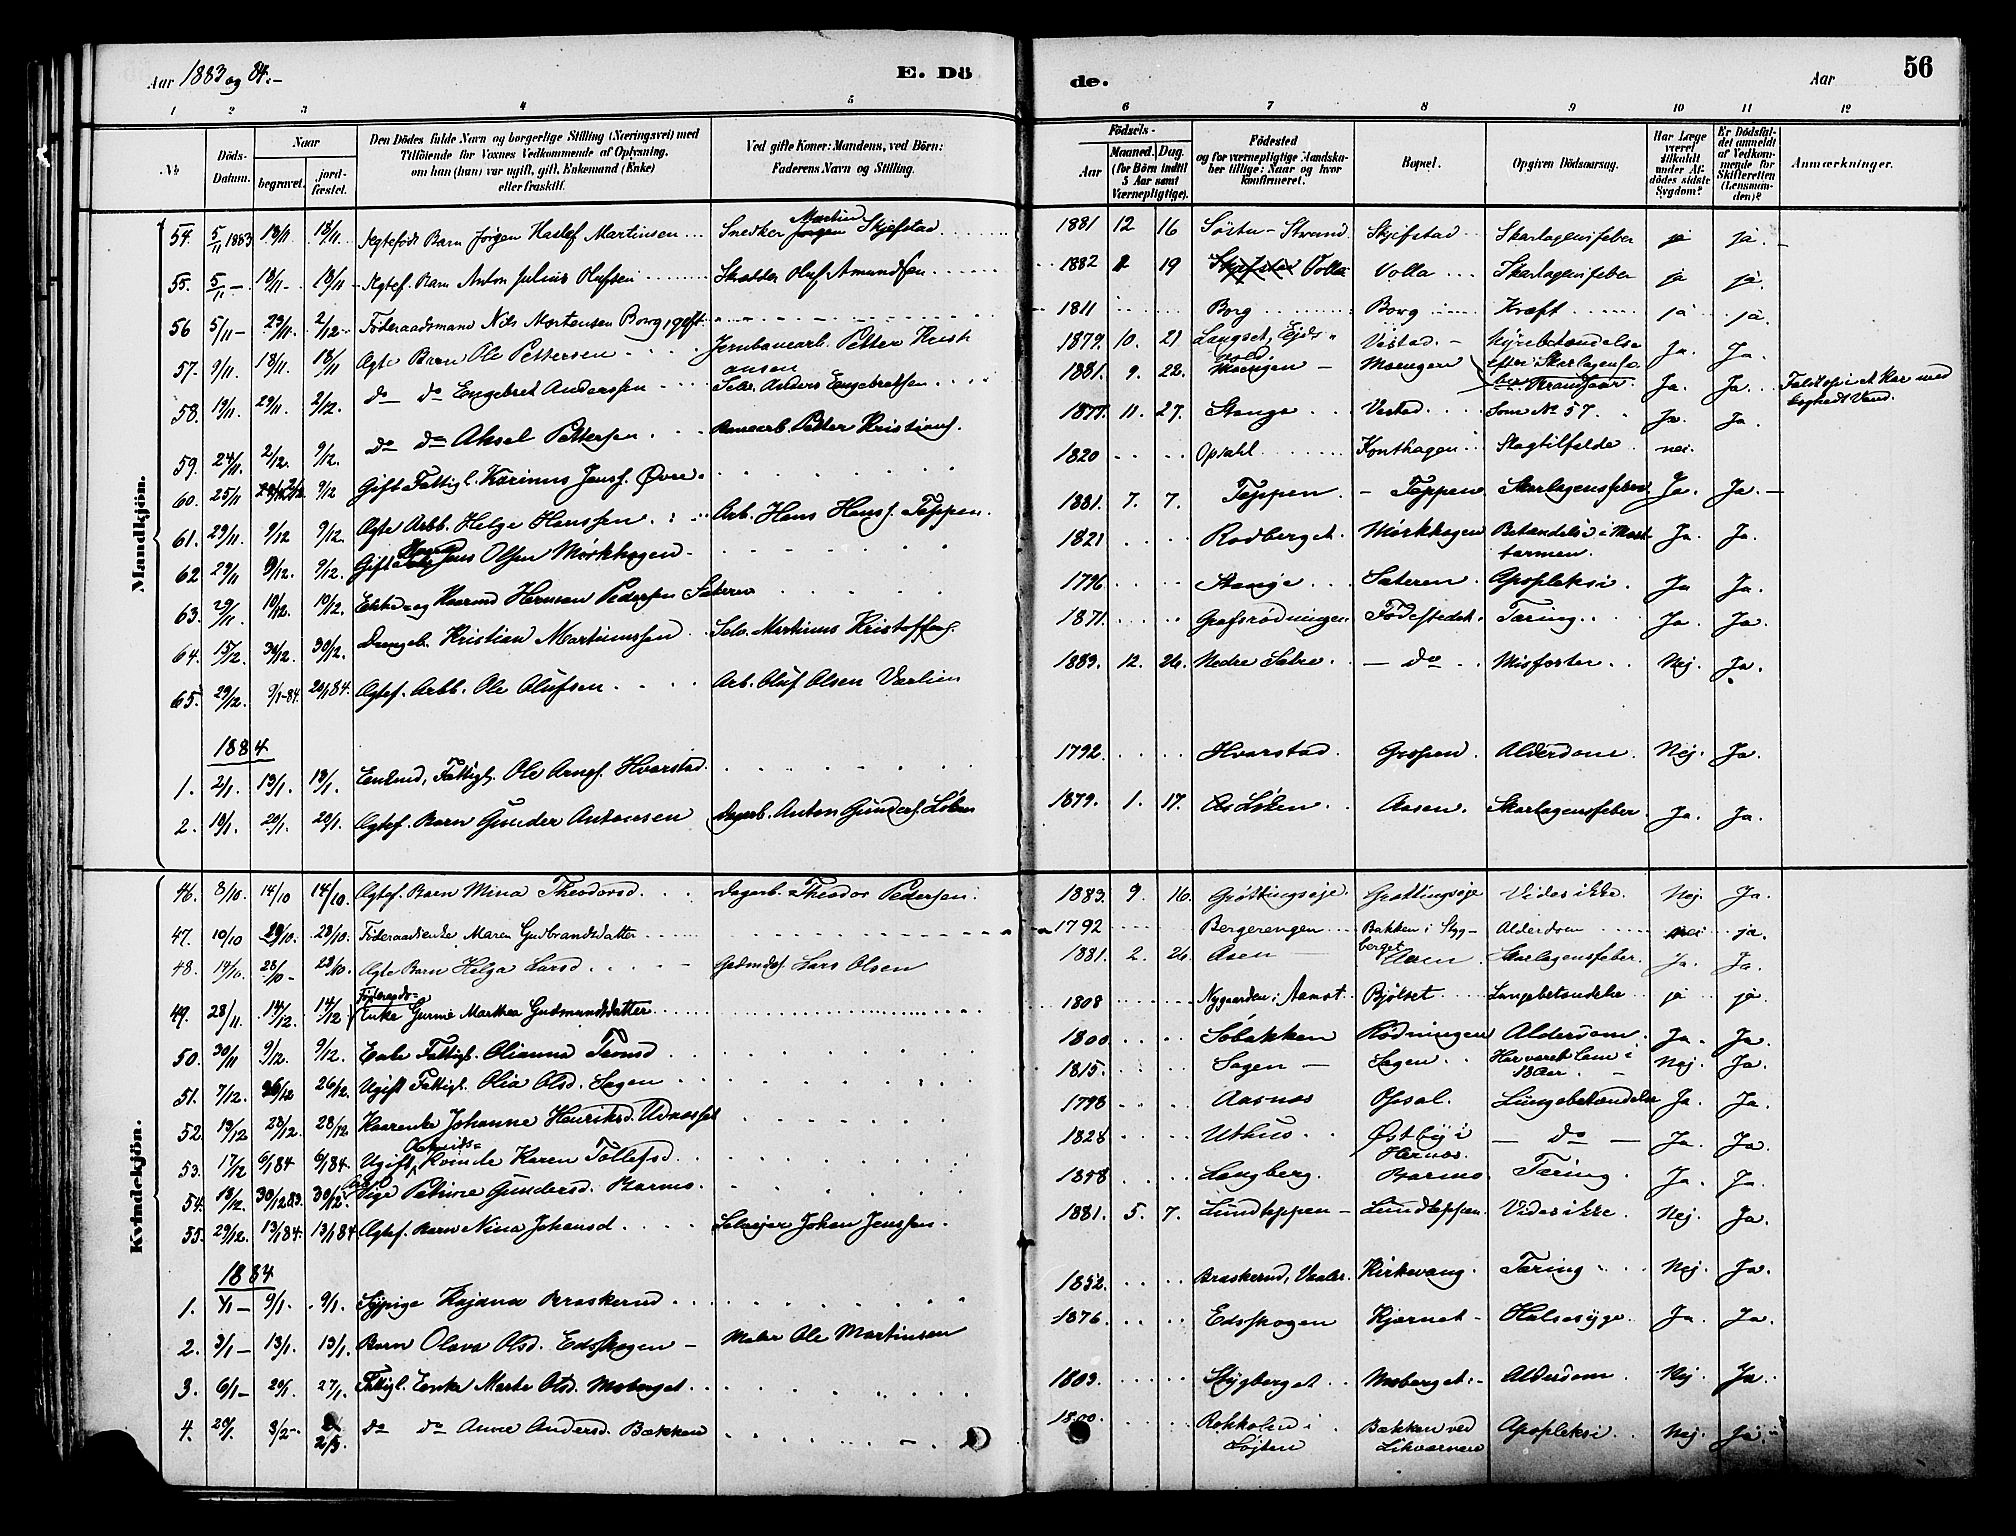 Aar 1883 og 84.-
E. Dö
de.
Aar
56
1 2 3 4 5 6 7 8 9 10 11 12
No
Döds-Datum.
Naar
begravet.
jord-fæstet.
Den Dödes fulde Navn og borgerlige Stilling (Næringsvei) med
Tilföiende for Voxnes Vedkommende af Oplysning,
om han (hun) var ugift, gift, Enkemand (Enke)
eller fraskilt.
Ved gifte Koner: Mandens, ved Börn:
Faderens Navn og Stilling.
Födsels-
Aar
Maaned. Dag.
(for Börn indtil 5 Aar samt Værnepligtige).
Födested
og for værnepligtige Mandskaber tillige: Naar og hvor konfirmeret.
Bopæl.
Opgiven Dödsaarsag.
Har Læge været tilkaldt under Afdödes sidste Sygdom?
Er Dödsfaldet anmeldt af Vedkommende for Skifteretten (Lensmanden)?
Anmærkninger.
Mandkjön.
54. 5/11 1883 18/11 18/11. Ægtefödt Barn Jörgen Hartef Martinsen Snedker Martin Skjefstad 1881 12 16 Sörtu-Strand Skjefstad Skarlagensfeber ja ja.
55. 5/11 - 18/11 - 18/11 - Ægtef. Barn Anton Julius Olufsen Skrædder Oluf Amundsen 1882 2 19 Volla Volla Skarlagensfeber ja ja.
56 5/11 - 23/11. 2/12 - Föderaadsmand Nils Mortensen Borg, gift. 1811 Borg Borg Kræft ja ja.
57. 9/11. 18/11. 18/11 Ægte Barn Ole Pettersen Jernbanearb. Petter Kristiansen 1879. 10. 21. Langset, Eidsvold. Vestad. Nyrebetændelse efter Skarlagensfeber Ja. Ja.
58. 19/11. 29/11. 2/12. do do Engebret Anderssen Selv. Anders Engebretsen 1881. 9. 22. Moengen Moengen Brandsaar. Ja. Ja. Faldt op i et Kar med koghedt Vand.
59. 24/11. 2/12. 9/12. do do Aksel Pettersen Banearb. Petter Kristians. 1877. 11. 27. Stange Vestad. Som No 57. Ja. Ja.
60. 25/11 2/12 9/12 Gift Fattigl. Karinus Jensf. Övre. 1820 Opsahl Konthagen Slagtilfælde nei.
61. 29/11. 9/12 9/12. Ægte Arbb. Helge Hanssen Arb. Hans Hansf. Teppen. 1881. 7. 7. Teppen. - Teppen. Skarlagensfeber. Ja. Ja. -
62 29/11 9/12. 9/12. Gift Jens Olsen Mörkhagen 1821 Rodberget. Mörkhagen Betændelse i Mastarmen. Ja. Ja.
63. 29/11. 19/12. 19/12. Enkem. og Kaarmd Herman Pedersen Sæteren 1796 Stange Sæteren. Apopleksi. Ja Ja.
64. 15/12. 30/12. 30/12. Drengeb. Kristian Martinussen Selv. Martinus Kristoffers. 1871. Grafsrødningen Fødestedet. Tæring. Ja. Ja.
65. 29/12. 9/1-84. 20/1 84. Ægtef. Arbb. Ole Olufsen. Arb. Oluf Olsen Værlien 1883. 12. 26. Nedre Sætre. - do Misfoster Nej. Ja.
1884
1. 2/1. 13/1. 13/1. Enkmd, Fattigl. Ole Arnes. Hvarstad. 1792. Hvarstad. Gropen. Alderdom. Nej. Ja.
2. 19/1. 20/1. 20/1. Ægtef. Barn Gunder Antonsen Dagarb. Anton Gunders. Löken 1879. 1. 17. Löken. Aasen. Skarlagensfeber Ja. Ja.
Kvindekjön.
46. 8/10. 14/10 14/10 Ægtef. Barn Mina Theodorsd. Dagarb. Theodor Pedersen. 1883. 9. 16. Gröttingseje. Grøttingseje Vides ikke. Nej. Ja.
47. 10/10 28/10. 28/10. Föderaadsenke Maren Gudbrandsdatter 1792 Bergerengen Bakken i Styg-berget Alderdom nei ja.
48. 19/10. 28/10 - 28/10. Ægte Barn Helga Larsd. Gaardm. Lars Olsen 1881. 2. 26. Aasen Aasen Skarlagensfeber. Ja. Ja.
49. 28/11. 14/12. 14/12 Föderaads-Enke Gurine Marthea Gudmundsdatter 1808 Nygaarden i Aamot Bjölset Lungebetændelse ja ja.
50. 30/11 9/12. 9/12. Enke Fattigl. Olianna Tronsd 1800 Söbakken Rödningen Alderdom. Ja. Ja.
51. 7/12. 26/12 26/12. Ugift Fattigl. Olia Olsd. Sagen 1815. Sagen - Sagen. Har været Lam i 18 Aar. Nej. Ja.
52 19/12 28/12. 28/12. Kaarenke Johanne Henriksd. Udnæsset 1798 Aasnæs Opsal. Lungebetændelse Ja. Ja.
53. 17/12 6/1 84 6/1 84. Ugift Arbeids-Kvinde Karen Tollefsd. 1828 Uthus Östby i Hernæs. - do - Ja. Ja.
54. 18/12. 30/12 83. 30/12. Pige Petrine Gundersd. Barmo. 1858 Langberg. Barmo. Tæring. Ja. Ja.
55. 29/12. 13/1 84. 13/1 84 Ægtef. Barn Nina Johansd. Selvejer Johan Jenssen. 1881. 5. 7. Lundteppen - Lundteppen. Vides ikke. Nej. Ja.
1884
1. 1/1 - 9/1. 9/1. Sypige Kajana Braskerud 1852. Braskerud, Vaaler. Kirkevang. Tæring. Nej. Ja.
2. 3/1 - 13/1. 13/1. Barn Olava Olsd. Edsskogen - Maler Ole Martinsen 1876. Edsskogen Kjærnet - Halssyge. Ja. Ja.
3. 6/1 - 20/1. 27/1. Fattigl. Enke Marte Olsd. Moberget. 1803. Stygberget Moberget. - Alderdom. Nej. Ja.
4. 20/1. 3/2 - 2/3. do do Anne Andersd. Bækken 1800. Rokkolen i Löjten Bækken ved Likværnen Apopleksi. Nej. Ja.